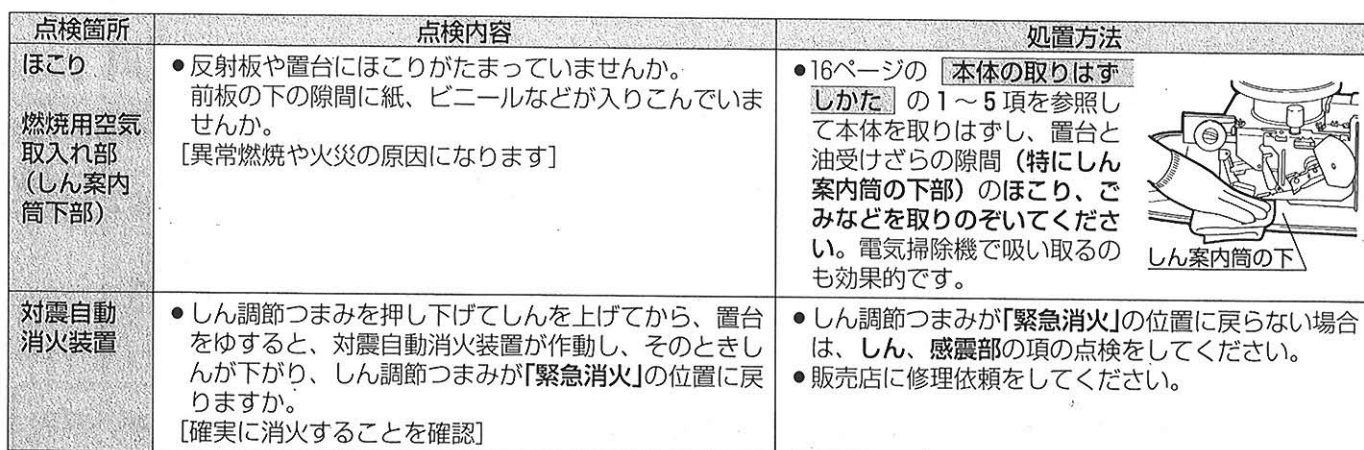 点検箇所
点検内容
処置方法
ほこり
燃焼用空気
取入れ部
（しん案内
筒下部）
●反射板や置台にほこりがたまっていませんか。
前板の下の隙間に紙、ビニールなどが入りこんでいま
せんか。
［異常燃焼や火災の原因になります］
●16ページの 本体の取りはず
しかた の1～5項を参照し
て本体を取りはずし、置台と
油受けざらの隙間（特にしん
案内筒の下部）のほこり、ご
みなどを取りのぞいてくださ
い。電気掃除機で吸い取るの
も効果的です。
しん案内筒の下
対震自動
消火装置
●しん調節つまみを押し下げてしんを上げてから、置台
をゆすると、対震自動消火装置が作動し、そのときし
んが下がり、しん調節つまみが「緊急消火」の位置に戻
りますか。
［確実に消火することを確認］
●しん調節つまみが「緊急消火」の位置に戻らない場合
は、しん、感震部の項の点検をしてください。
●販売店に修理依頼をしてください。